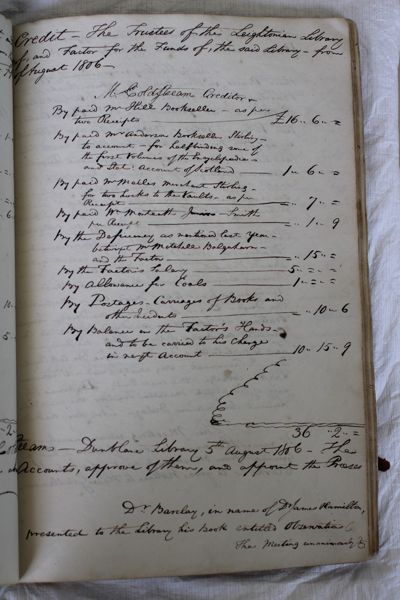 Credit – The Trustees of the Leightonian Library
and Factor for the Funds of the said Library – from
August 1806 –
Mr. Coldstream Creditor
By paid Mr Hill Bookseller – as per
two Receipts £16 .. 6 .. =
By paid Mr Anderson Bookseller Stirling –
to account – for halfbinding some of
the first Volumes of the Encyclopedia –
and Stat: Account of Scotland 1 .. 6 .. =
By paid Mr merchant Stirling –
for two Locks to the Vaults – as per
Receipt = .. 7 .. =
By paid Wm Monteath Smith
per Receipt = .. 1 .. 9
By the Deficiency as last Year
betwixt Mr Mitchell
and the Factor = .. 15 .. =
By the Factor's Salary 5 .. = .. =
By Allowance for Coals 1 .. = .. =
By Postages – Carriages of Books and
other Incidents = .. 10 .. 6
By Balance in the Factor's Hands –
and to be carried to his Charge
in next Account 10 .. 15 .. 9
36 .. 2 .. =
– Dunblane Library 5th August 1806 – The
Accounts, approve of them, and appoint the
Dr. Barclay, in name of Dr James Hamilton,
presented to the Library his Book entitled Observations
The Meeting unanimously